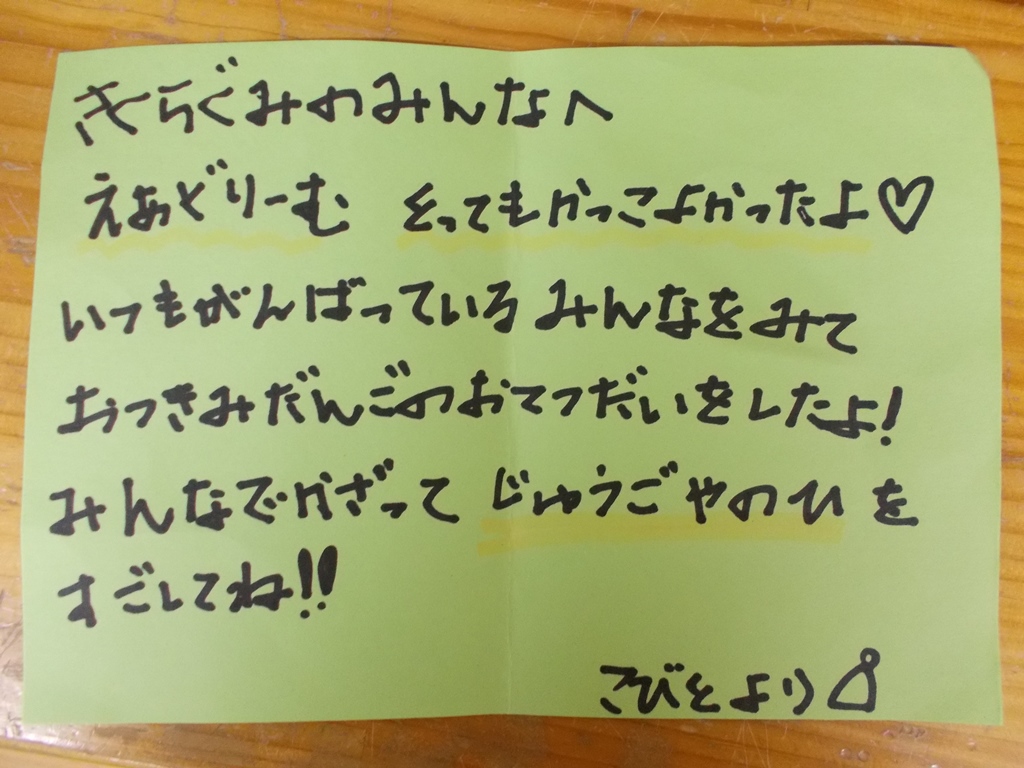 きらぐみのみんなへ
えあどりーむ とってもかっこよかったよ♡
いつもがんばっているみんなをみて
おつきみだんごのおてつだいをしたよ!
みんなでかざって じゅうごやのひを
すごしてね!!
こびとより